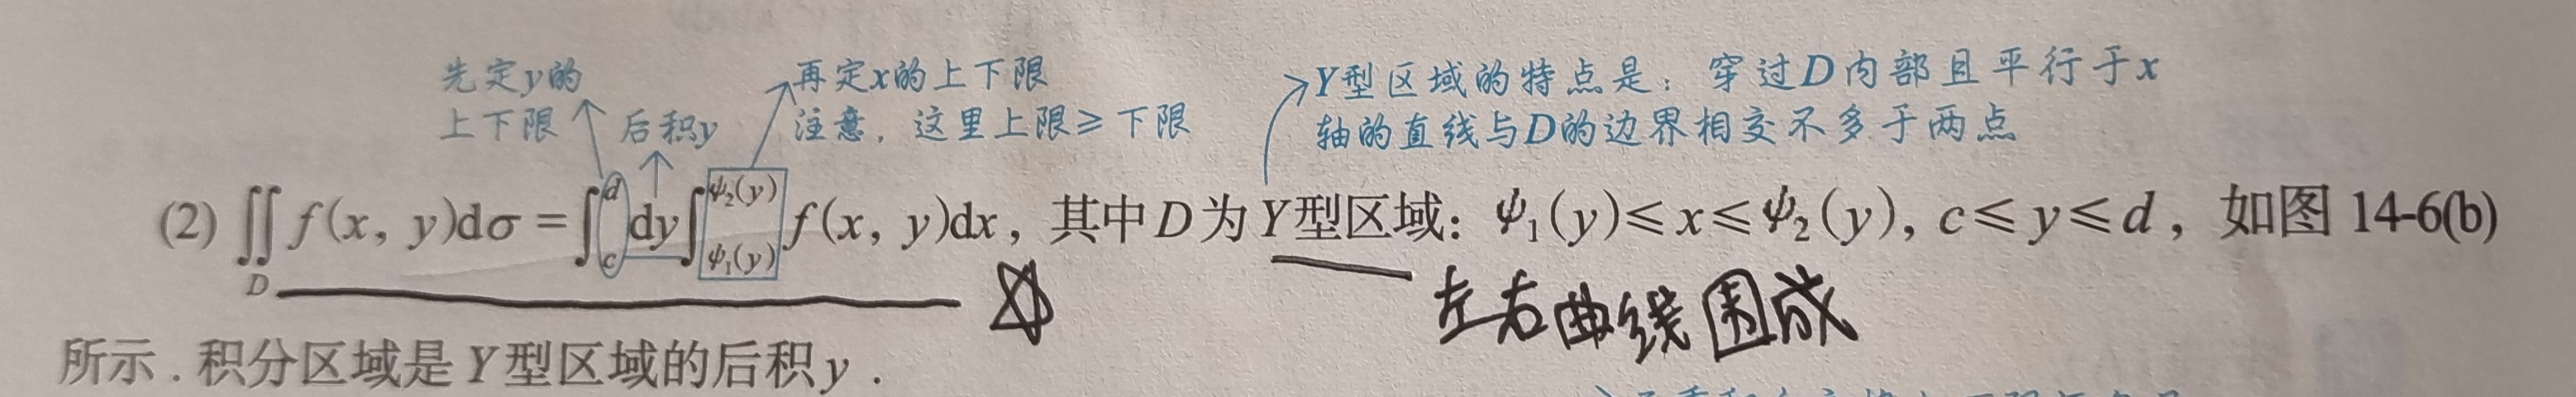 先定y的
上下限
后积y
再定x的上下限
注意，这里上限≥下限
Y型区域的特点是：穿过D内部且平行于x
轴的直线与D的边界相交不多于两点
(2) ∬_D f(x, y)dσ = ∫_c^d dy ∫_{ψ₁(y)}^{ψ₂(y)} f(x, y)dx，其中D为Y型区域：ψ₁(y)≤x≤ψ₂(y), c≤y≤d，如图 14-6(b)
左右曲线围成
所示．积分区域是Y型区域的后积y．